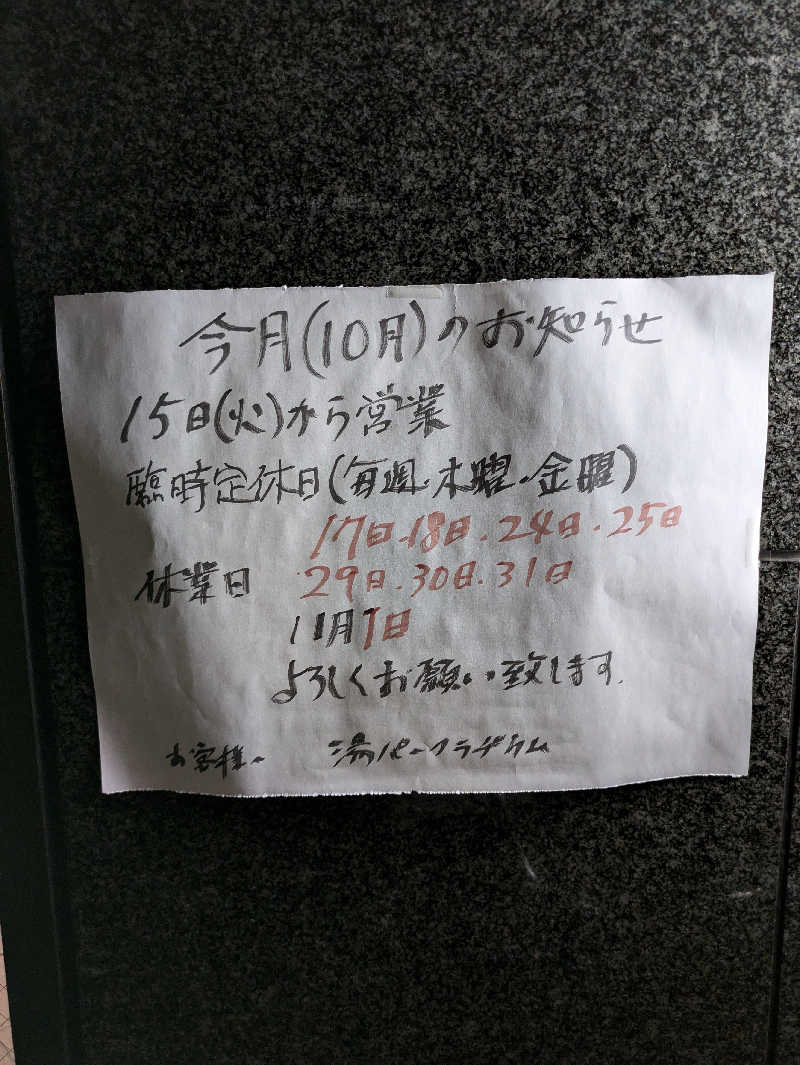 今月(10月)のお知らせ
15日(火)から営業
臨時定休日(毎週・木曜・金曜)
17日・18日・24日・25日
休業日 29日・30日・31日
11月1日
よろしくお願い致します。
お客様へ 湯パークラヂウム